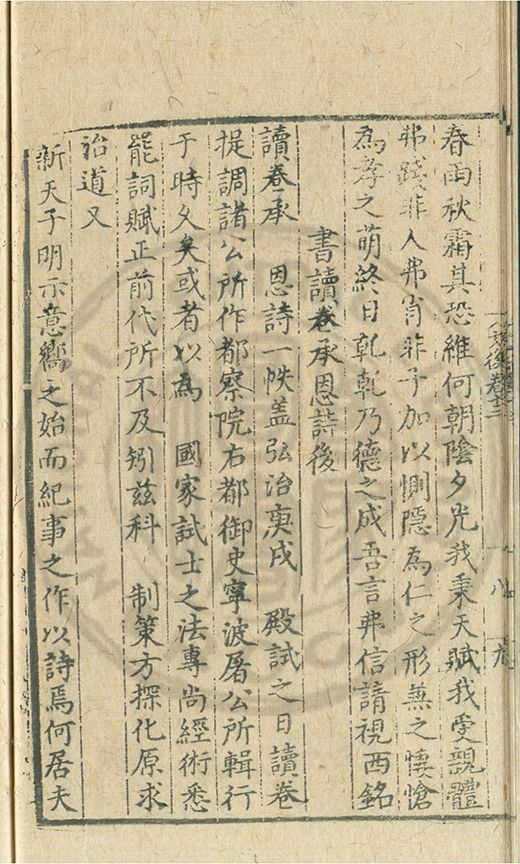 春雨秋霜其恐維何朝陰夕光我秉天賦我受親體
弗踐非人弗肯非子加以惻隱為仁之形蒸之悽愴
為孝之萌終日乾乾乃德之成吾言弗信請視西銘
書讀卷承恩詩後
讀卷承 恩詩一帙盖弘治庚戌 殿試之日讀卷
提調諸公所作都察院右都御史寧波屠公所輯行
于時久矣或者以為 國家試士之法專尚經術悉
罷詞賦正前代所不及矧兹科 制策方探化原求
治道又
新天子明示意嚮之始而紀事之作以詩焉何居夫